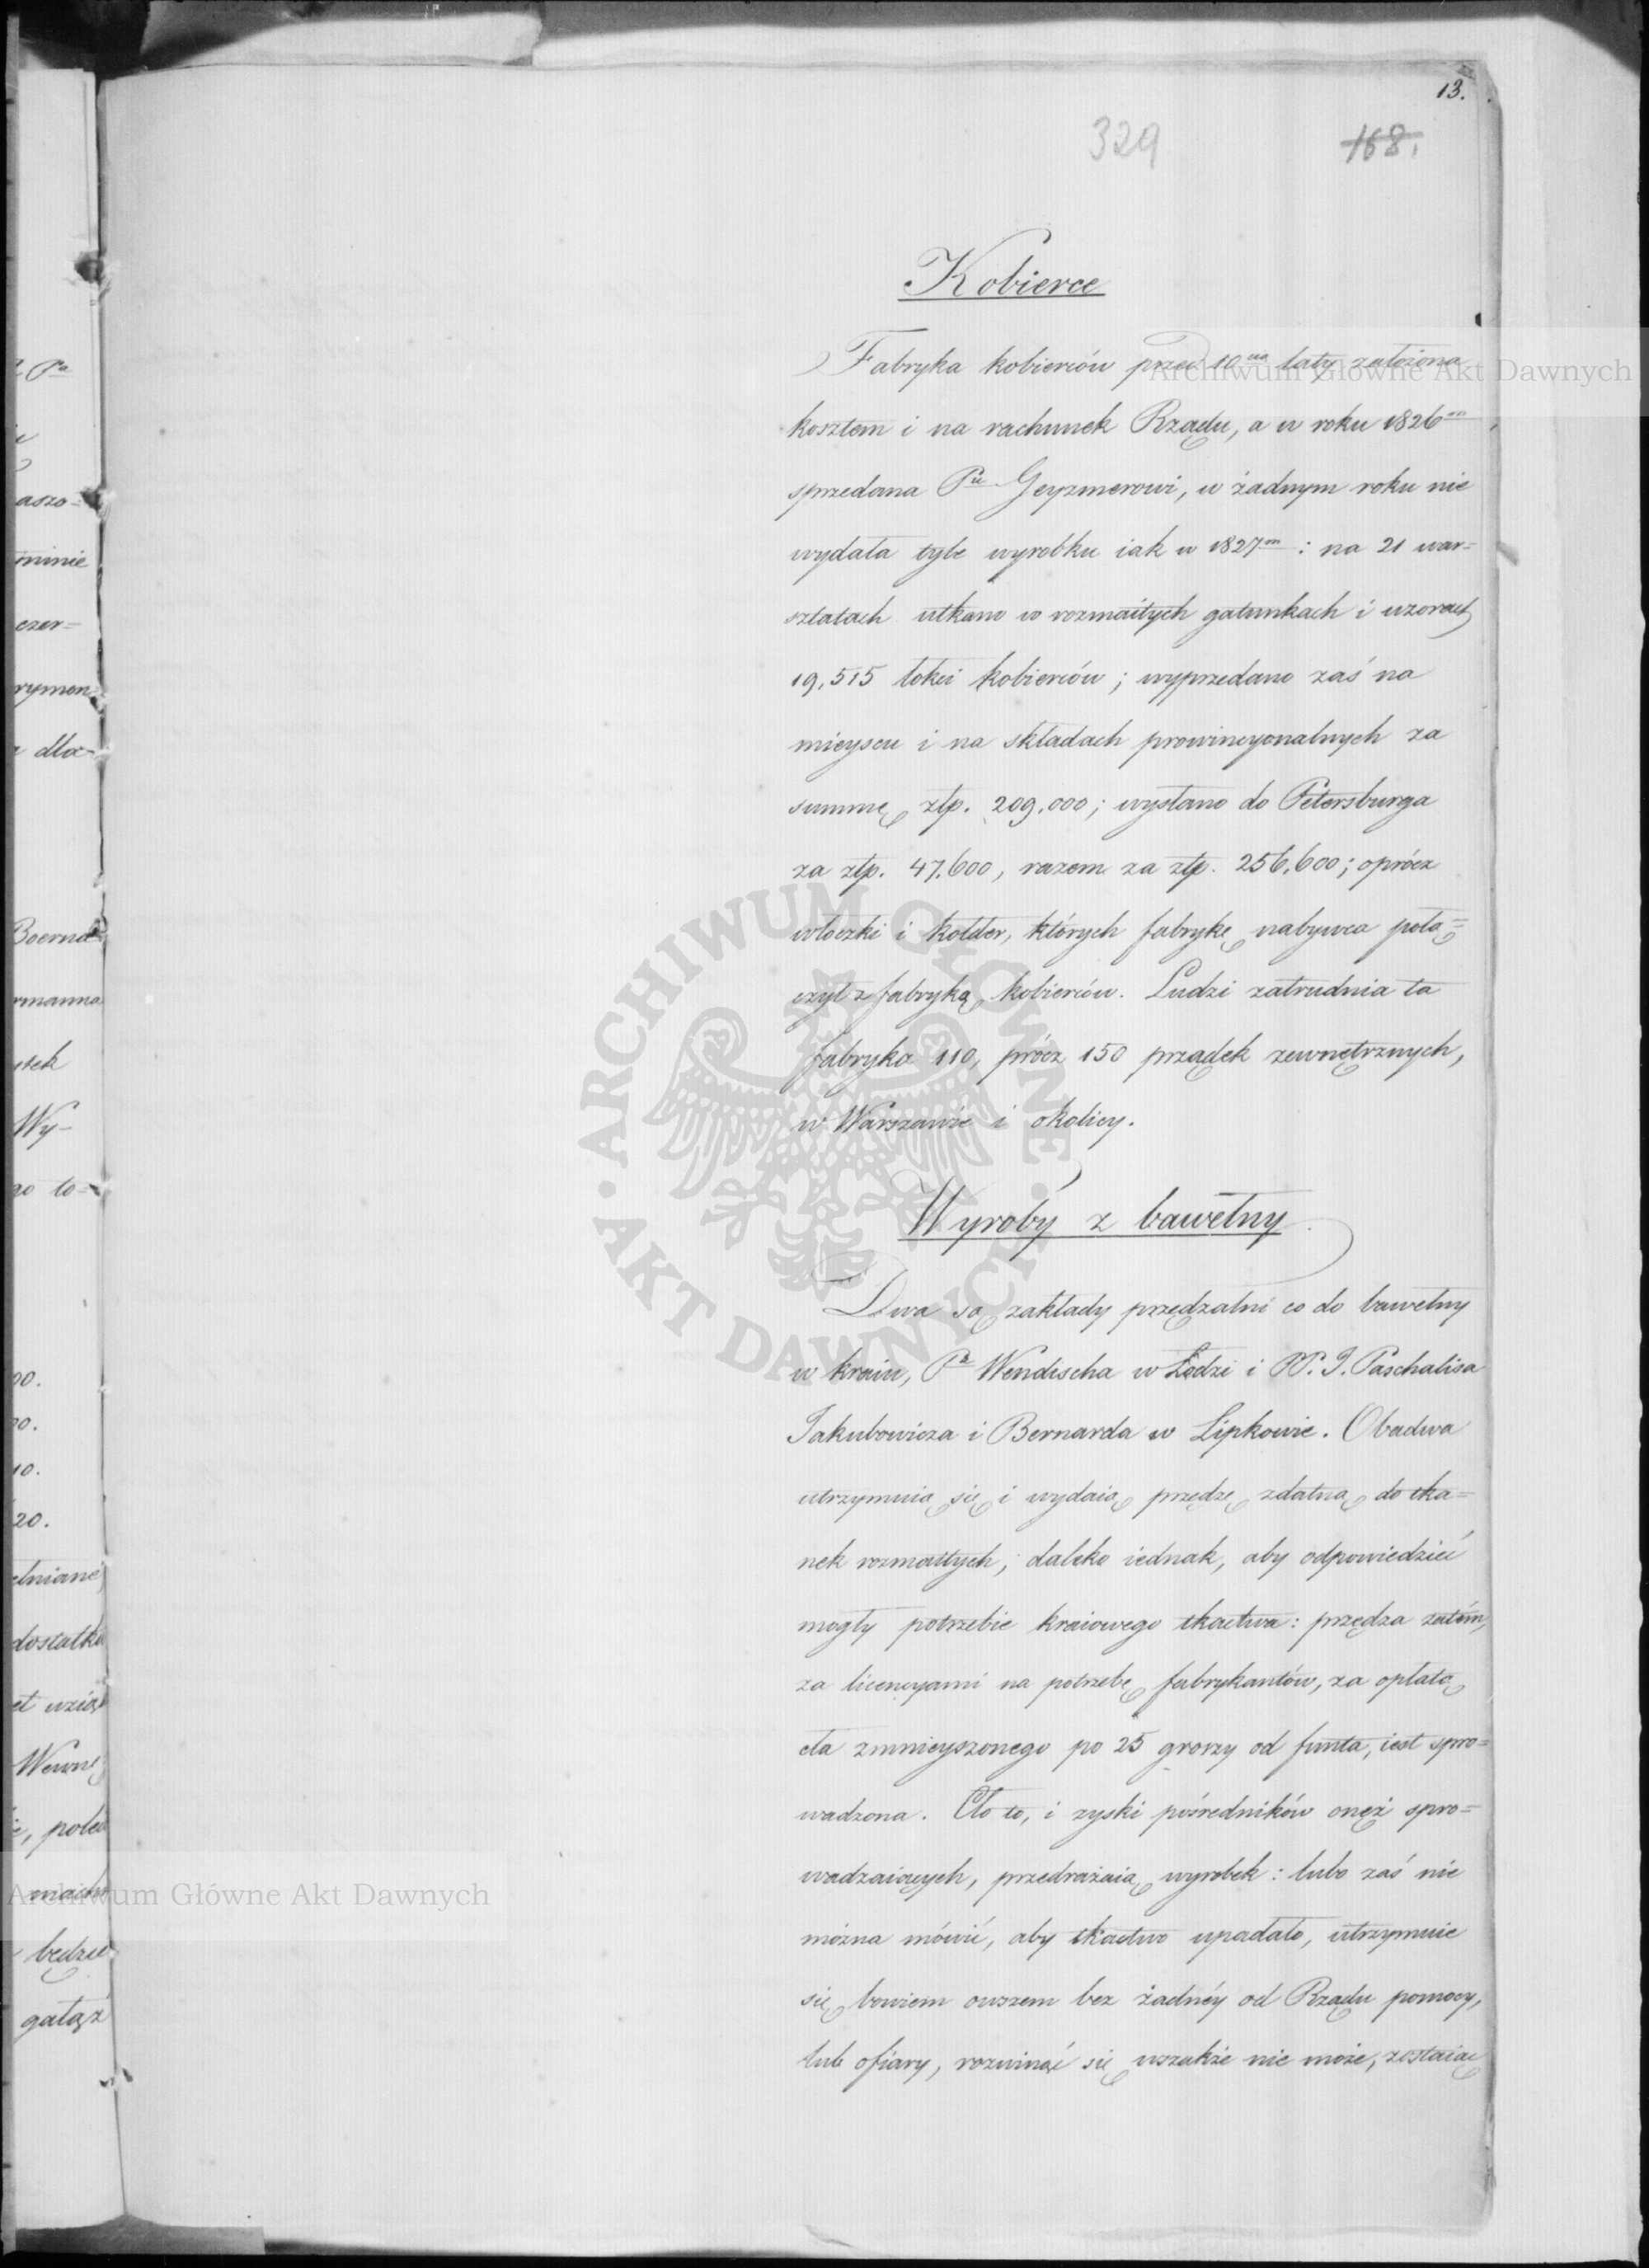 13.
329
168.
Kobierce
Fabryka kobierców przed 10ciu laty założona
kosztem i na rachunek Rządu, a w roku 1826m
sprzedana Pu Geyzmerowi, w żadnym roku nie
wydała tyle wyrobku iak w 1827m: na 21 war=
sztatach utkano w rozmaitych gatunkach i wzorach
19,515 łokci kobierców; wyprzedano zaś na
mieyscu i na składach prowincyonalnych za
summę złp. 209,000; wysłano do Petersburga
za złp. 47,600, razem za złp. 256,600; oprócz
włoczki i kołder, których fabrykę nabywca połą=
czył z fabryką kobierców. Ludzi zatrudnia ta
fabryka 110, prócz 150 prządek zewnętrznych,
w Warszawie i okolicy.
Wyroby z bawełny.
Dwa są zakłady przędzalni co do bawełny
w kraiu, Pa Wendischa w Łodzi i PP. J. Paschalisa
Jakubowicza i Bernarda w Lipkowie. Obadwa
utrzymuią się i wydaią przędzę zdatną do tka=
nek rozmaitych, daleko iednak, aby odpowiedzieć
mogły potrzebie kraiowego tkactwa: przędza zatém,
za licencyami na potrzebę fabrykantów, za opłatą
cła zmnieyszonego po 25 groszy od funta, iest spro=
wadzona. Cło to, i zyski pośredników onęż spro=
wadzaiących, przedrażaią wyrobek: lubo zaś nie
można mówić, aby tkactwo upadało, utrzymuie
się bowiem owszem bez żadnéy od Rządu pomocy,
lub ofiary, rozwinąć się wszakże nie może, zostaiąc
Pa
aszo=
minie
czer=
rymon=
dla=
Boerne
rmanna
stek
Wy-
go to=
00.
0.
10.
20.
ełniané
dostatku
Wewnę
będzie
gałąź
Archiwum Główne Akt Dawnych
ARCHIWUM GŁÓWNE · AKT DAWNYCH ·
Archiwum Główne Akt Dawnych